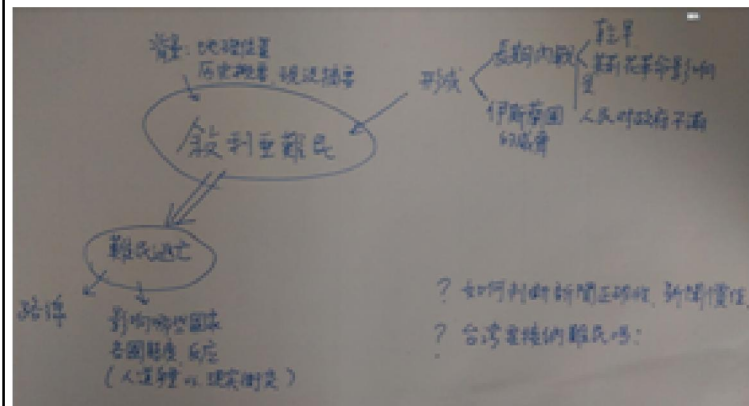 背景：地理位置
历史概要, 現況摘要
敘利亞難民
形成
長期內戰
茉莉花革命影響
人民對政府不滿
伊斯蘭國
的威脅
難民逃亡
路線
影響哪些國家
各國態度, 反应
(人道 vs. 現實衝突)
? 如何判斷新聞正確性, 新聞價值
? 台湾要接納難民嗎?